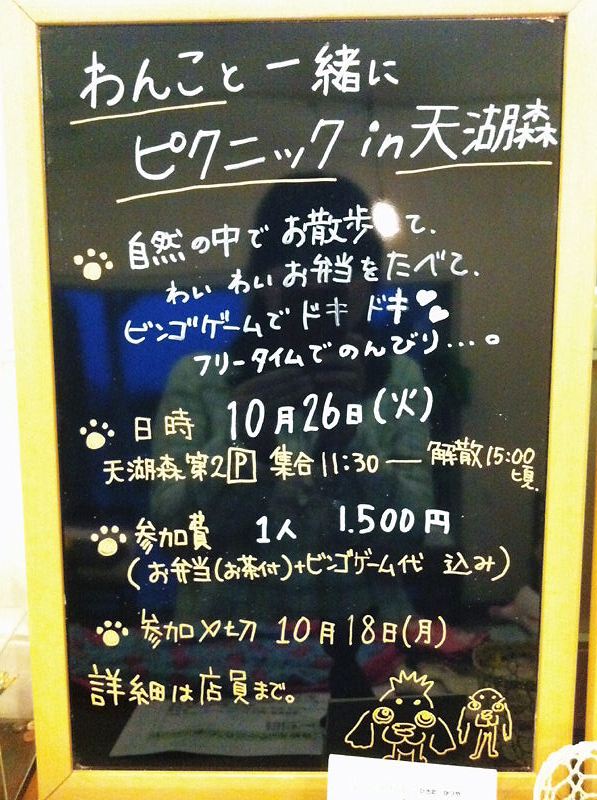 わんこと一緒に
ピクニック in 天湖森
自然の中でお散歩 て、
わいわいお弁当をたべて、
ビンゴゲームでドキドキ
フリータイムでのんびり…。
日時 10月26日(火)
天湖森第2P 集合11:30 ― 解散15:00頃
参加費 1人 1.500円
(お弁当(お茶付)+ビンゴゲーム代 込み)
参加〆切 10月18日(月)
詳細は店員まで。